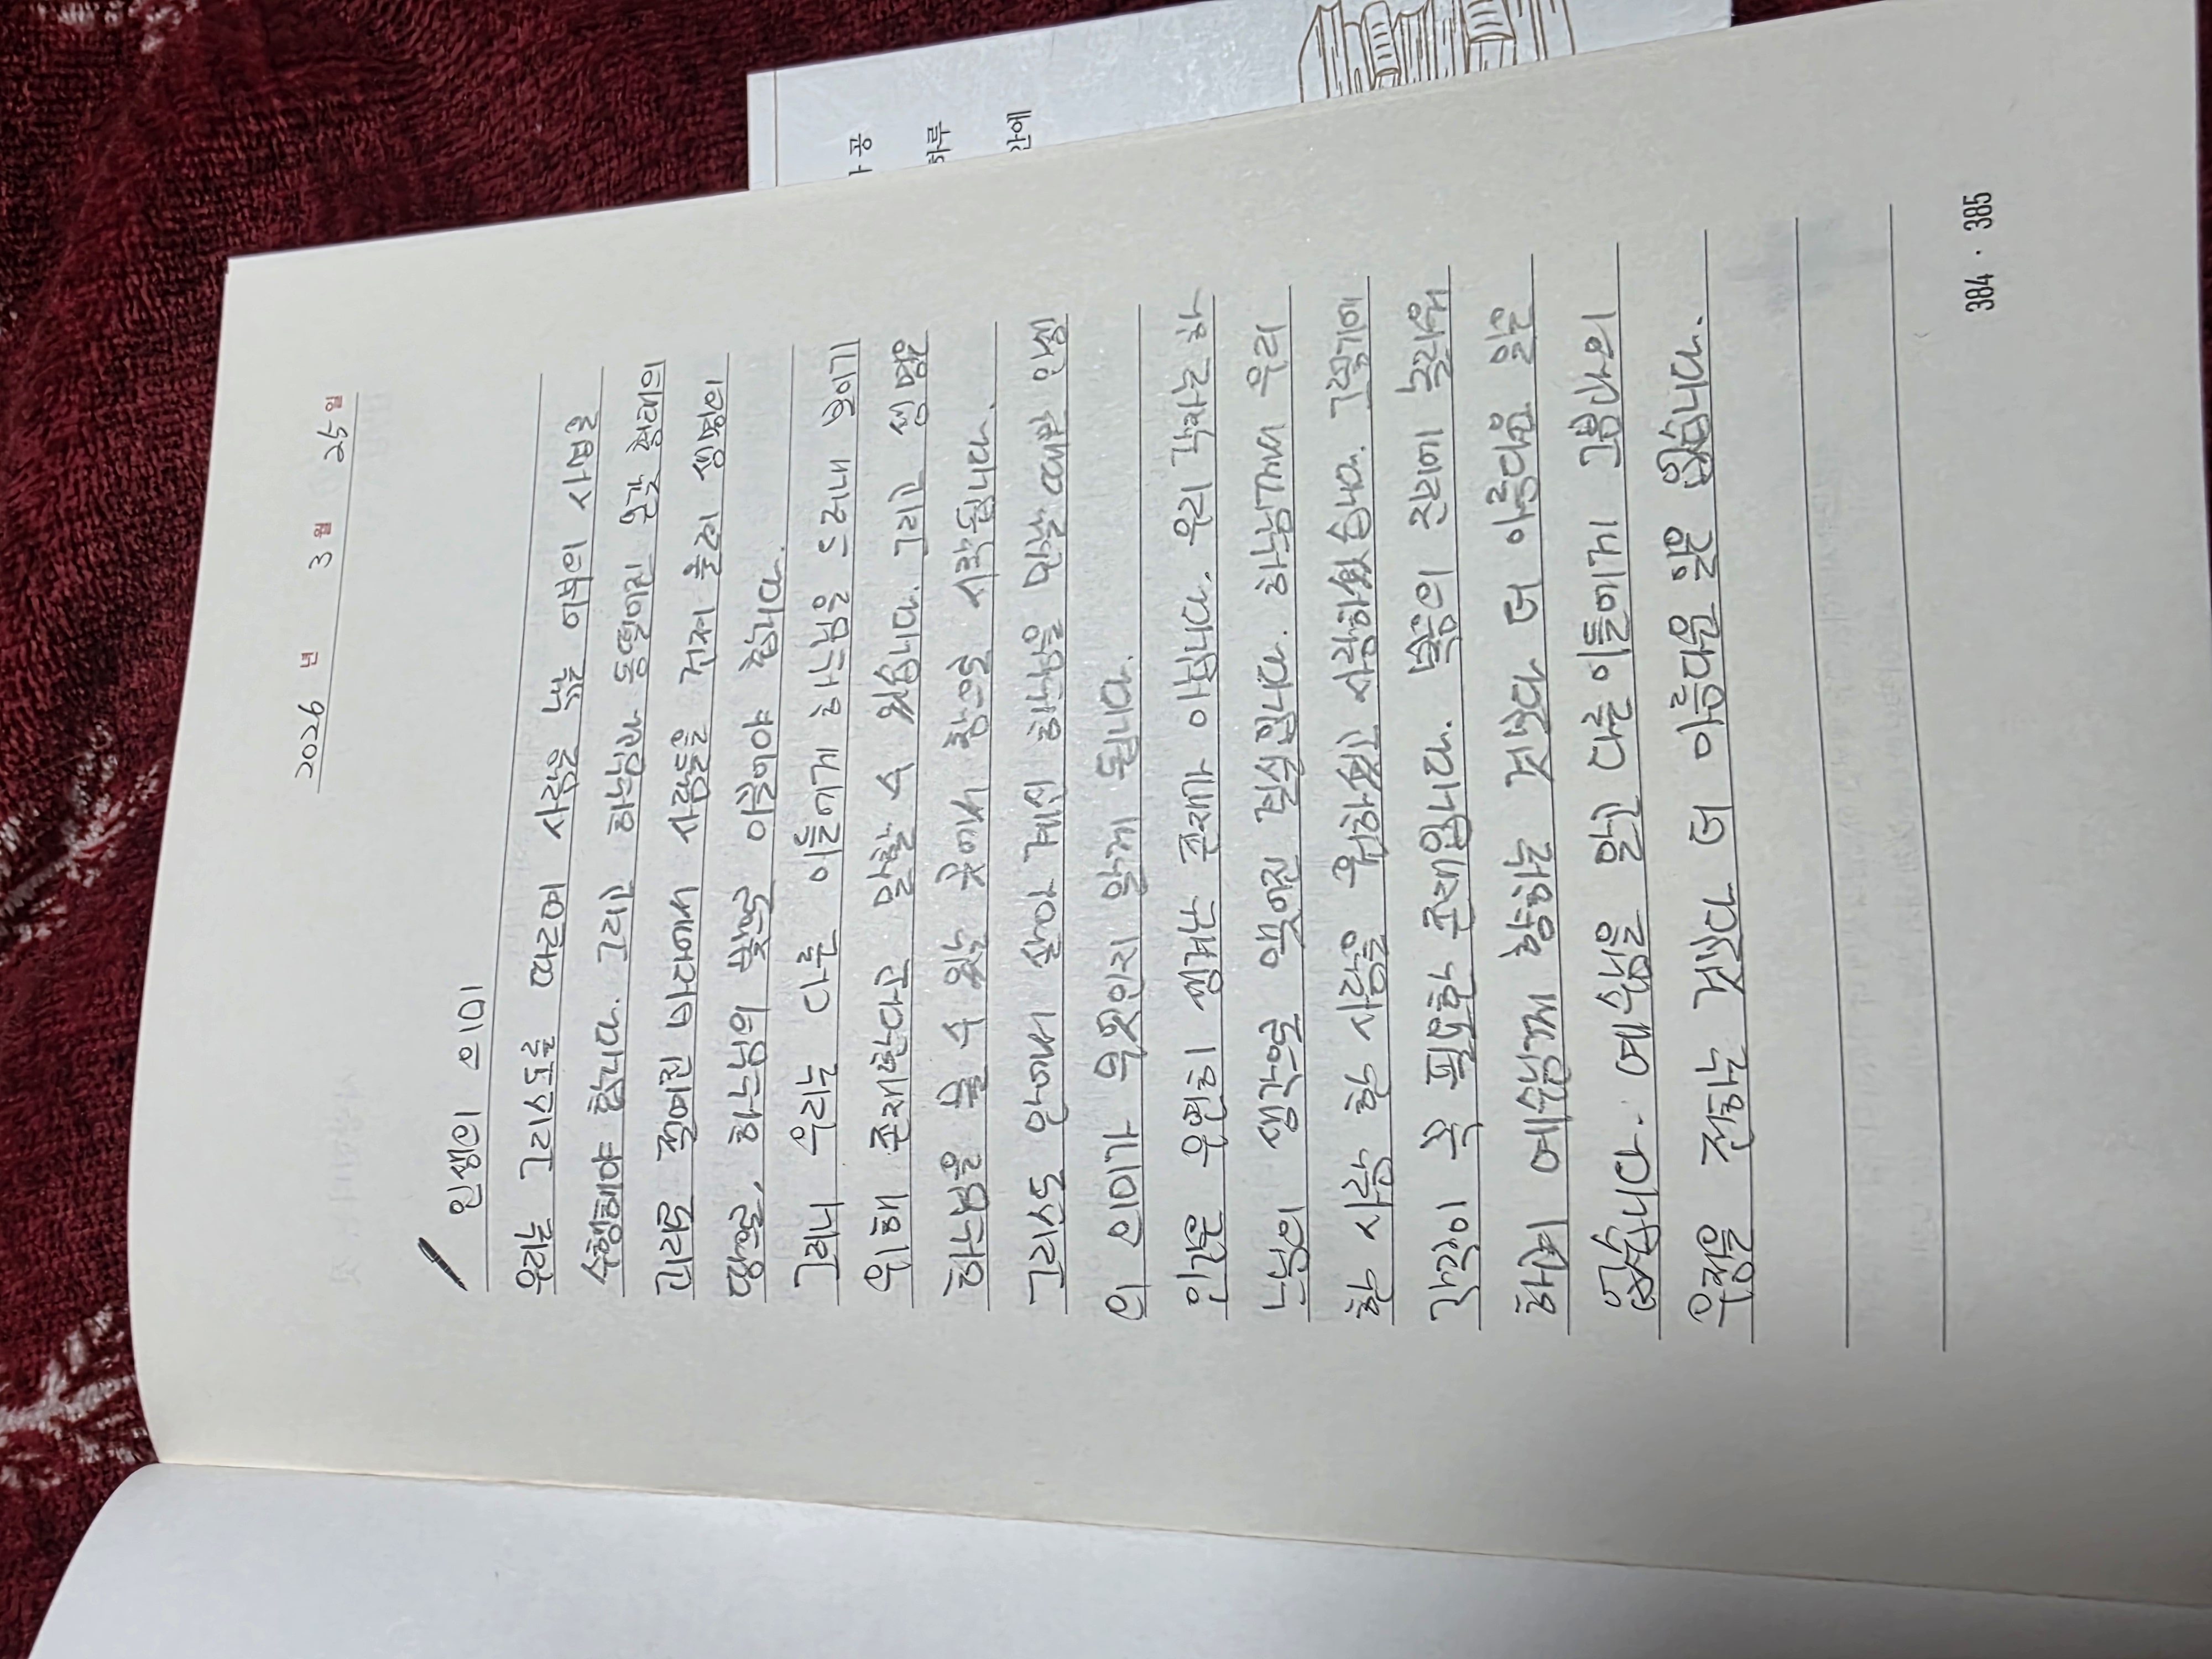 공
하루
간에
2026 년 3 월 25 일
인생의 의미
우리는 그리스도를 따라서 사람을 낚는 어부의 사명을
수행해야 합니다. 그리고 하느님과 동떨어진 온갖 형태의
괴리로 찌어진 바다에서 사람들을 건져 올려 생명의
땅으로, 하느님의 빛으로 이끌어야 합니다.
그러니 우리는 다른 이들에게 하느님을 드러내 보이기
위해 존재한다고 말할 수 있습니다. 그리고 생명은
하느님을 볼 수 있는 곳에서 참으로 시작됩니다.
그리스도 안에서 살아 계신 하느님을 만날 때만 인생
의 의미가 무엇인지 알게 됩니다.
인간은 우연히 생겨난 존재가 아닙니다. 우리 각자는 하
느님의 생각으로 맺어진 결실입니다. 하느님께서 우리
한 사람 한 사람을 원하시고 사랑하십니다. 그렇기에
각각이 꼭 필요한 존재입니다. 복음의 진리에 놀라워
하며 예수님께 속하는 것보다 더 아름다운 일은
없습니다. 예수님을 알고 다른 이들에게 그분과의
우정을 전하는 것보다 더 아름다운 일은 없습니다.
384 · 385